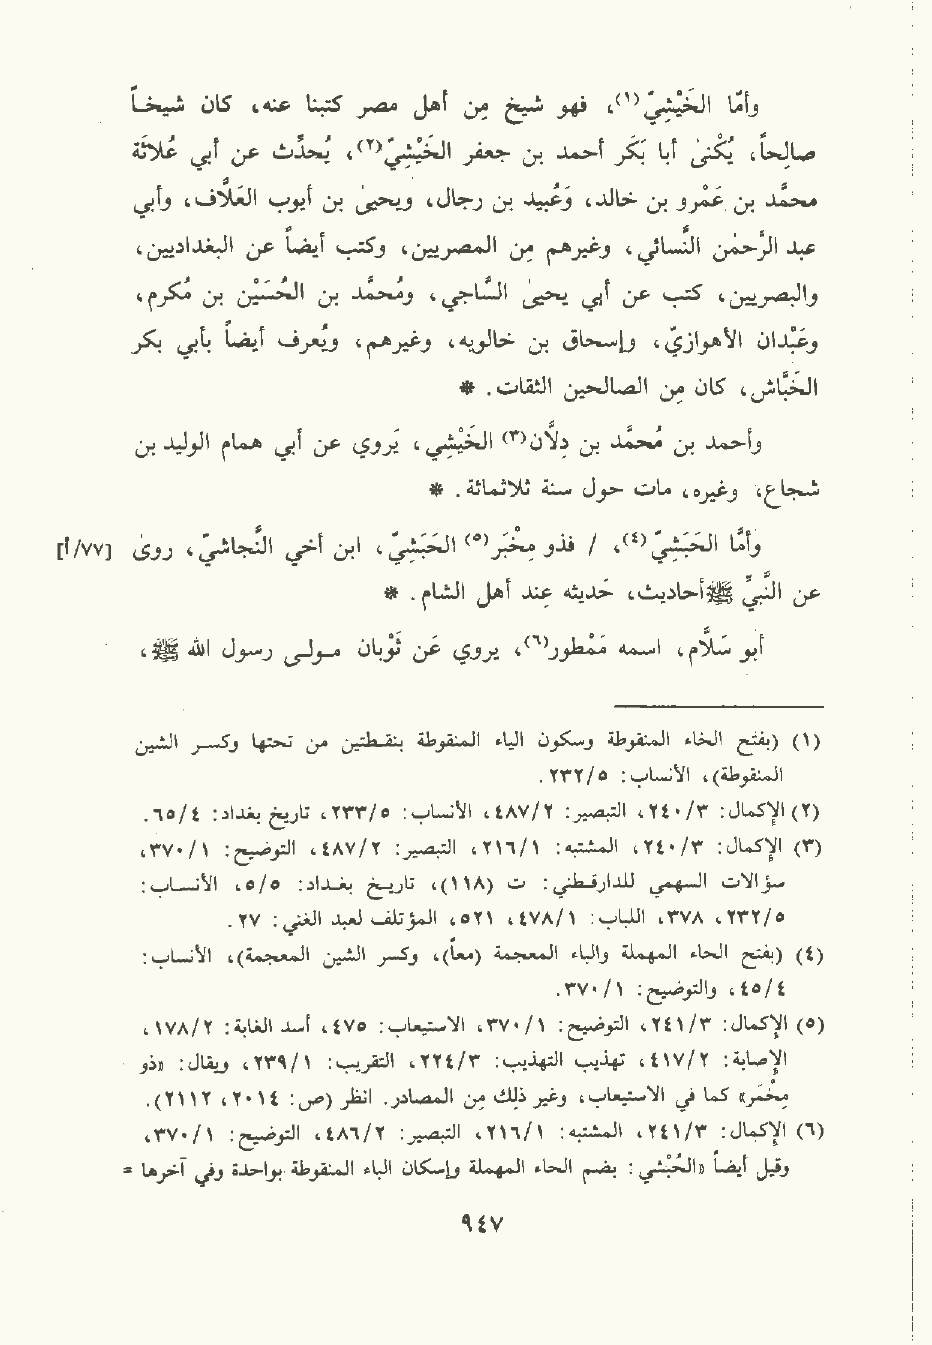 وأمّا الخَيْشِيّ(١)، فهو شيخ مِن أهل مصر كتبنا عنه، كان شيخاً
صالِحاً، يُكْنىٰ أبا بَكر أحمد بن جعفر الخَيْشِيّ(٢)، يُحدّث عن أبي عُلاثَة
محمّد بن عَمْرو بن خالد، وعُبيد بن رجال، ويحيىٰ بن أيوب العَلّاف، وأبي
عبد الرَّحمٰن النَّسائي، وغيرهم مِن المصريين، وكتب أيضاً عن البغداديين،
والبصريين، كتب عن أبي يحيىٰ السَّاجي، ومُحمَّد بن الحُسَيْن بن مُكرم،
وعَبْدان الأهوازيّ، وإسحاق بن خالويه، وغيرهم، ويُعرف أيضاً بأبي بكر
الخَبَّاش، كان مِن الصالحين الثقات. *
وأحمد بن مُحمَّد بن دِلّان(٣) الخَيْشِي، يَروي عن أبي همام الوليد بن
شجاع، وغيره، مات حول سنة ثلاثمائة. *
وأمَّا الحَبَشِيّ(٤)، / فذو مِخْبَر(٥) الحَبَشِيّ، ابن أخي النَّجاشيّ، روىٰ [٧٧/أ]
عن النَّبيِّ ﷺ أحاديث، حَديثه عِند أهل الشام. *
أبو سَلَّام، اسمه مَمْطور(٦)، يروي عَن ثَوْبان مـولـى رسول الله ﷺ،
(١) (بفتح الخاء المنقوطة وسكون الياء المنقوطة بنقـطتين من تحتها وكـسـر الشين
المنقوطة)، الأنساب: ٢٣٢/٥.
(٢) الإكمال: ٢٤٠/٣، التبصير: ٤٨٧/٢، الأنساب: ٢٣٣/٥، تاريخ بغداد: ٦٥/٤.
(٣) الإكمال: ٢٤٠/٣، المشتبه: ٢١٦/١، التبصير: ٤٨٧/٢، التوضيح: ٣٧٠/١،
سؤالات السهمي للدارقـطني: ت (١١٨)، تاريخ بغـداد: ٥/٥، الأنسـاب:
٢٣٢/٥، ٣٧٨، اللباب: ٤٧٨/١، ٥٢١، المؤتلف لعبد الغني: ٢٧.
(٤) (بفتح الحاء المهملة والباء المعجمة (معاً)، وكسر الشين المعجمة)، الأنساب:
٤٥/٤، والتوضيح: ٣٧٠/١.
(٥) الإكمال: ٢٤١/٣، التوضيح: ٣٧٠/١، الاستيعاب: ٤٧٥، أسد الغابة: ١٧٨/٢،
الإصابة: ٤١٧/٢، تهذيب التهذيب: ٢٢٤/٣، التقريب: ٢٣٩/١، ويقال: «ذو
مِخْمَر» كما في الاستيعاب، وغير ذلك مِن المصادر. انظر (ص: ٢٠١٤، ٢١١٢).
(٦) الإكمال: ٢٤١/٣، المشتبه: ٢١٦/١، التبصير: ٤٨٦/٢، التوضيح: ٣٧٠/١،
وقيل أيضاً «الحُبْشي: بضم الحاء المهملة وإسكان الباء المنقوطة بواحدة وفي آخرها =
٩٤٧